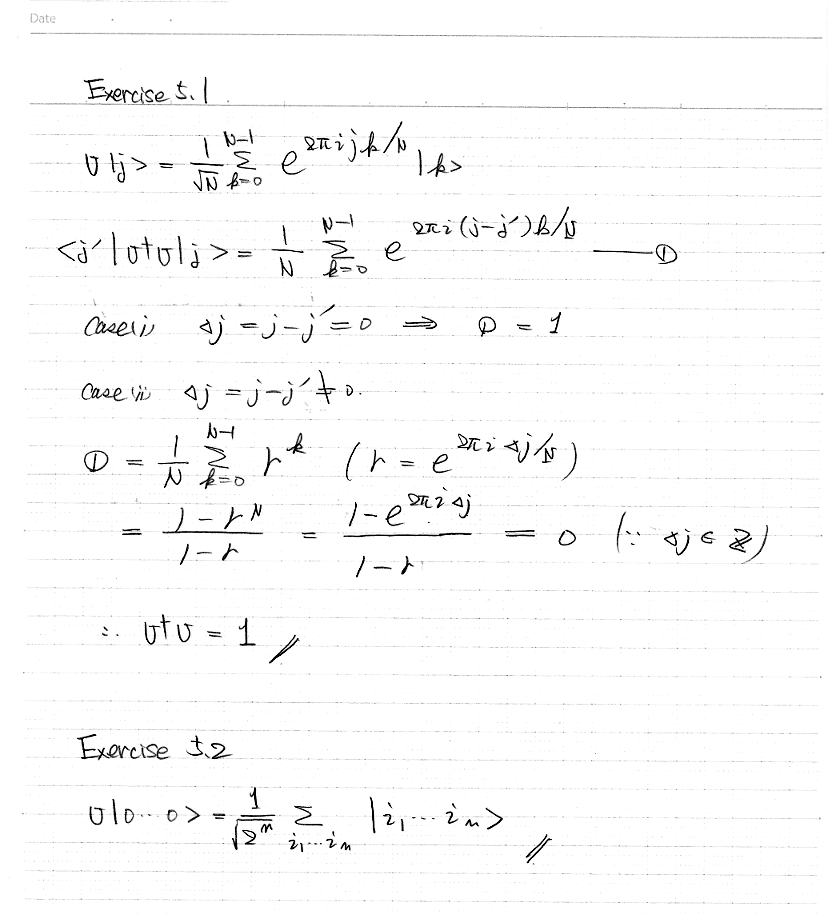 Date . .
Exercise 5.1
U|j> = 1/√N Σ_{k=0}^{N-1} e^{2πijk/N} |k>
<j′|U†U|j> = 1/N Σ_{k=0}^{N-1} e^{2πi(j-j′)k/N} —— ①
Case(i) Δj = j-j′ = 0 ⇒ ① = 1
Case(ii) Δj = j-j′ ≠ 0.
① = 1/N Σ_{k=0}^{N-1} r^k (r = e^{2πiΔj/N})
= (1-r^N)/(1-r) = (1-e^{2πiΔj})/(1-r) = 0 (∵ Δj ∈ ℤ)
∴ U†U = 1 //
Exercise 5.2
U|0…0> = 1/√2^n Σ_{i₁…i_n} |i₁…i_n> //